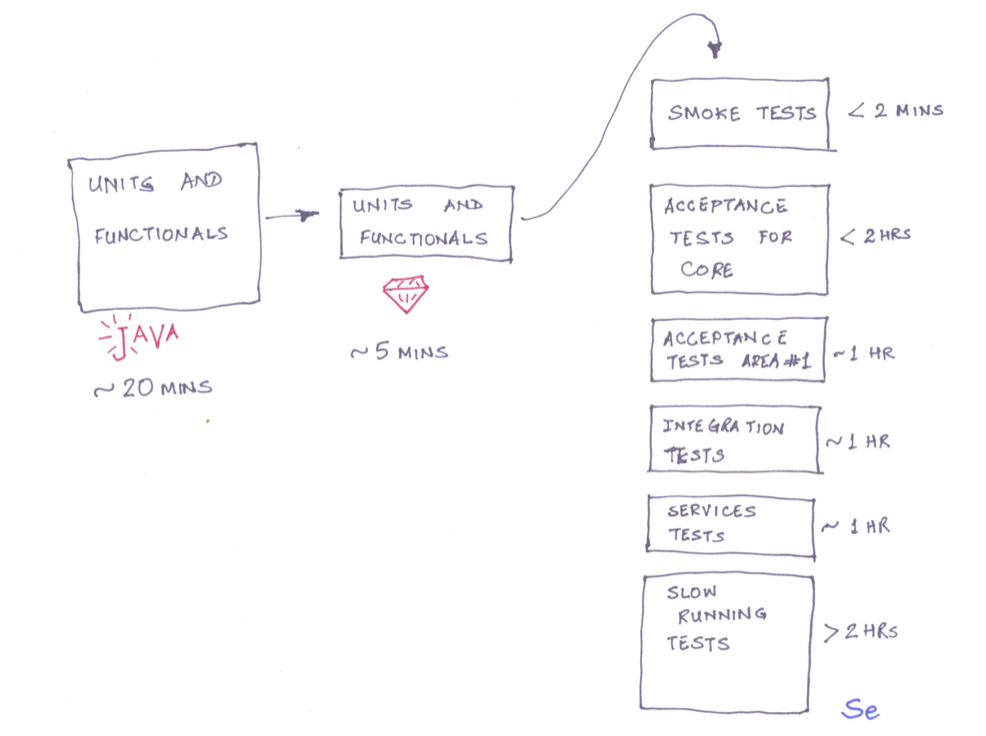 UNITS AND
FUNCTIONALS
JAVA
~ 20 MINS
UNITS AND
FUNCTIONALS
~ 5 MINS
SMOKE TESTS
< 2 MINS
ACCEPTANCE
TESTS FOR
CORE
< 2 HRS
ACCEPTANCE
TESTS AREA #1
~ 1 HR
INTEGRATION
TESTS
~ 1 HR
SERVICES
TESTS
~ 1 HR
SLOW
RUNNING
TESTS
> 2 HRS
Se